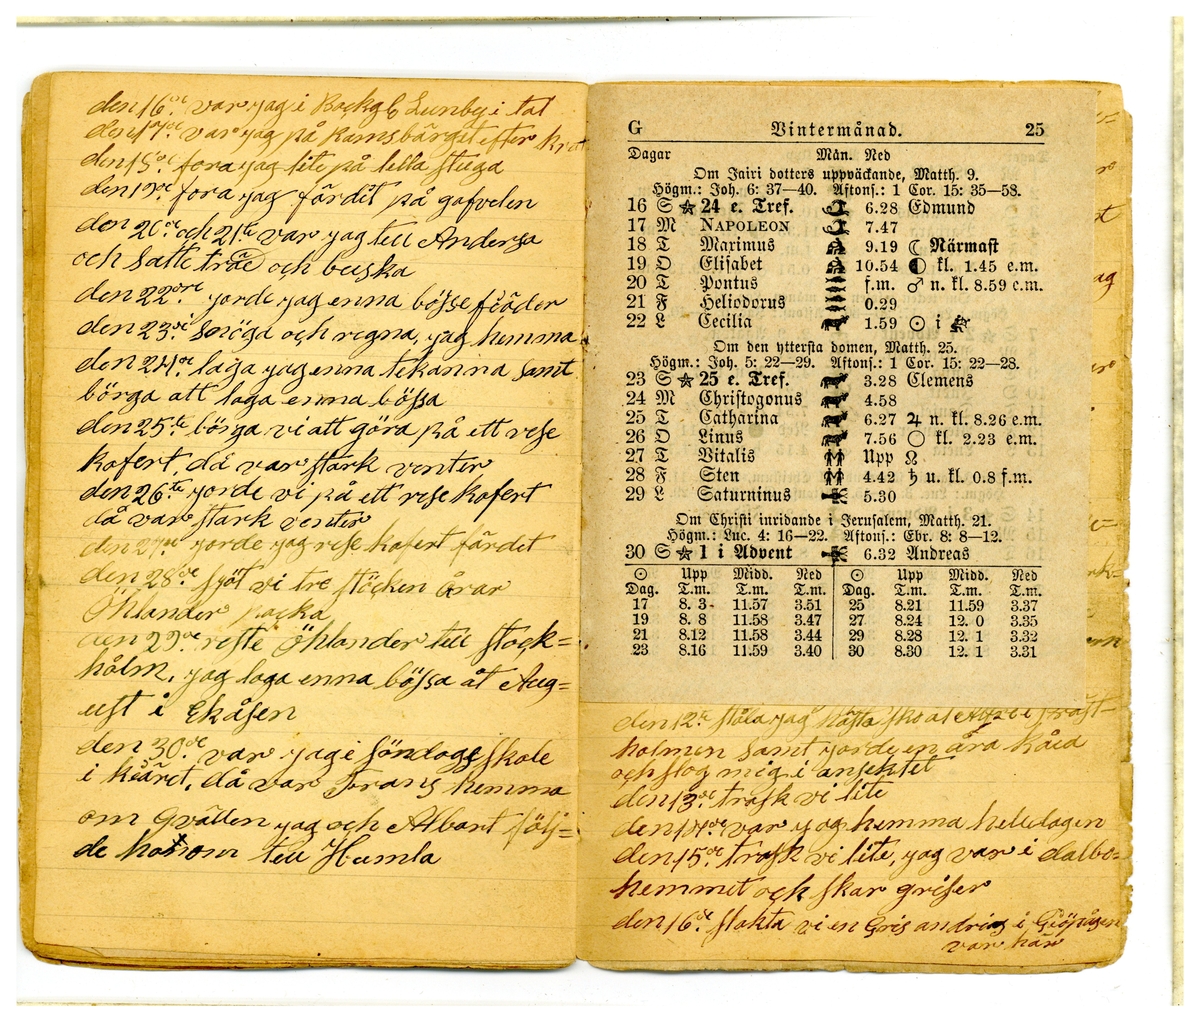 den 16de var jag i Backgb Lunby i tal
den 17de var jag på Ramsbärget efter
den 18de fora jag lite på lella stuga
den 19de fora jag färdit på gafvelen
den 20de och 21ste var jag tell Andersa
och satte träe och buska
den 22dre jorde jag enna bösse fiäder
den 23di snöga och regna, jag hemma
den 24de laga jag enna tekanna samt
börga att laga enna bössa
den 25te börga vi att göra på ett rese
kofert, då var stark venter
den 26te jorde vi på ett rese kofert
då var stark venter
den 27de jorde jag rese kofert färdit
den 28de sjöt vi tre stöcken årar
Öhlander packa
den 29de reste Öhlander tell stock=
hålm, jag laga enna bössa åt Aug=
ust i Ekåsen
den 30de var jag i söndags skole
i kiäret, då var Forans hemma
om qvällen jag och Albart följ=
de honom tell Humla
G Vintermånad. 25
Dagar Mån. Ned
Om Jairi dotters uppväckande, Matth. 9.
Högm.: Joh. 6: 37—40. Aftons.: 1 Cor. 15: 35—58.
16 S 24 e. Tref. 6.28 Edmund
17 M NAPOLEON 7.47
18 T Maximus 9.19 ☾ Närmast
19 O Elisabet 10.54 ◐ kl. 1.45 e.m.
20 T Pontus f.m. ♂ n. kl. 8.59 e.m.
21 F Heliodorus 0.29
22 L Cecilia 1.59 ☉ i ♐
Om den yttersta domen, Matth. 25.
Högm.: Joh. 5: 22—29. Aftons.: 1 Cor. 15: 22—28.
23 S 25 e. Tref. 3.28 Clemens
24 M Christogonus 4.58
25 T Catharina 6.27 ♃ n. kl. 8.26 e.m.
26 O Linus 7.56 ○ kl. 2.23 e.m.
27 T Vitalis Upp ☊
28 F Sten 4.42 ♄ u. kl. 0.8 f.m.
29 L Saturninus 5.30
Om Christi inridande i Jerusalem, Matth. 21.
Högm.: Luc. 4: 16—22. Aftons.: Ebr. 8: 8—12.
30 S 1 i Advent 6.32 Andreas
☉ Upp Midd. Ned ☉ Upp Midd. Ned
Dag. T.m. T.m. T.m. Dag. T.m. T.m. T.m.
17 8. 3 11.57 3.51 25 8.21 11.59 3.37
19 8. 8 11.58 3.47 27 8.24 12. 0 3.35
21 8.12 11.58 3.44 29 8.28 12. 1 3.32
23 8.16 11.59 3.40 30 8.30 12. 1 3.31
den 12te ståla jag hästa sko at
holmen samt jorde en åra kåla
och slog mig i ansektet
den 13de trask vi lite
den 14de var jag hemma heledagen
den 15de trask vi lite, jag var i dalbo=
hemmet och skar griser
den 16de slakta vi en Gris andrias i
var här